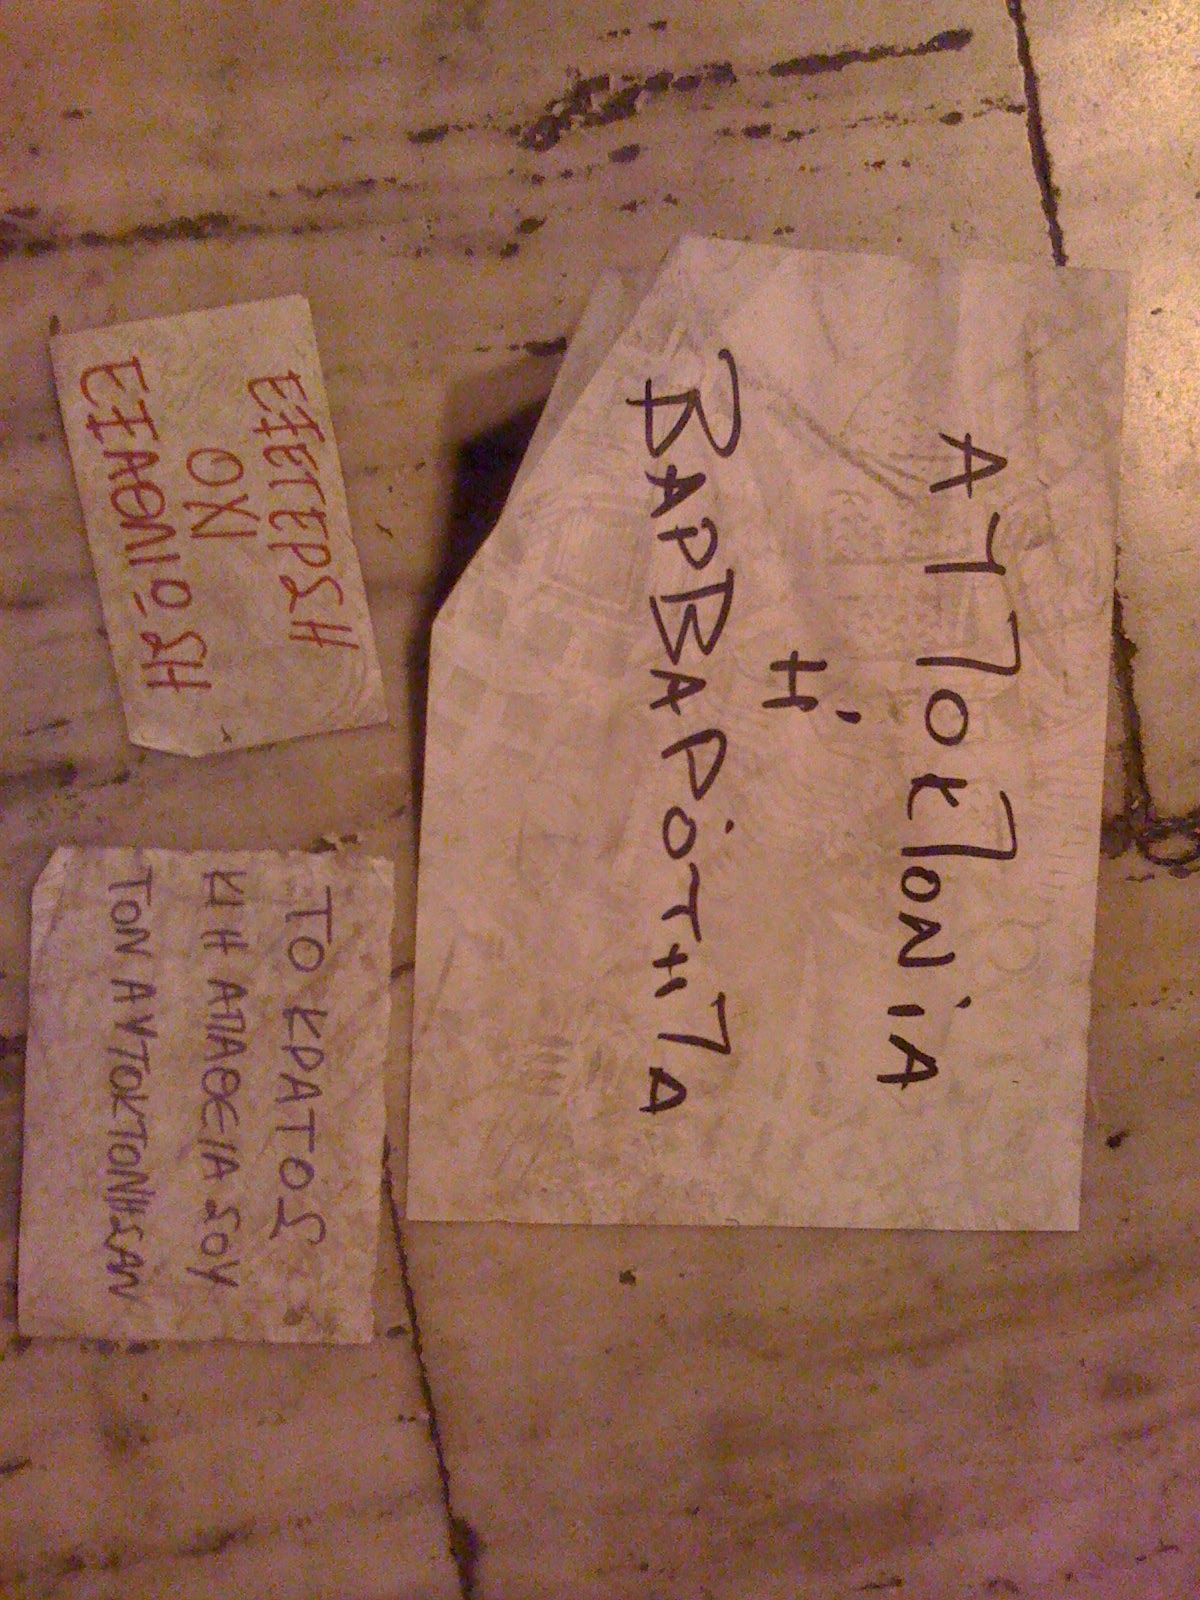 ΑΥΤΟΚΤΟΝΊΑ
Ή
ΒΑΡΒΑΡΌΤΗΤΑ
ΕΞΕΓΕΡΣΗ
ΟΧΙ
ΕΞΑΘΛΙΩΣΗ
ΤΟ ΚΡΑΤΟΣ
ΚΙ Η ΑΠΑΘΕΙΑ ΣΟΥ
ΤΟΝ ΑΥΤΟΚΤΟΝΗΣΑΝ